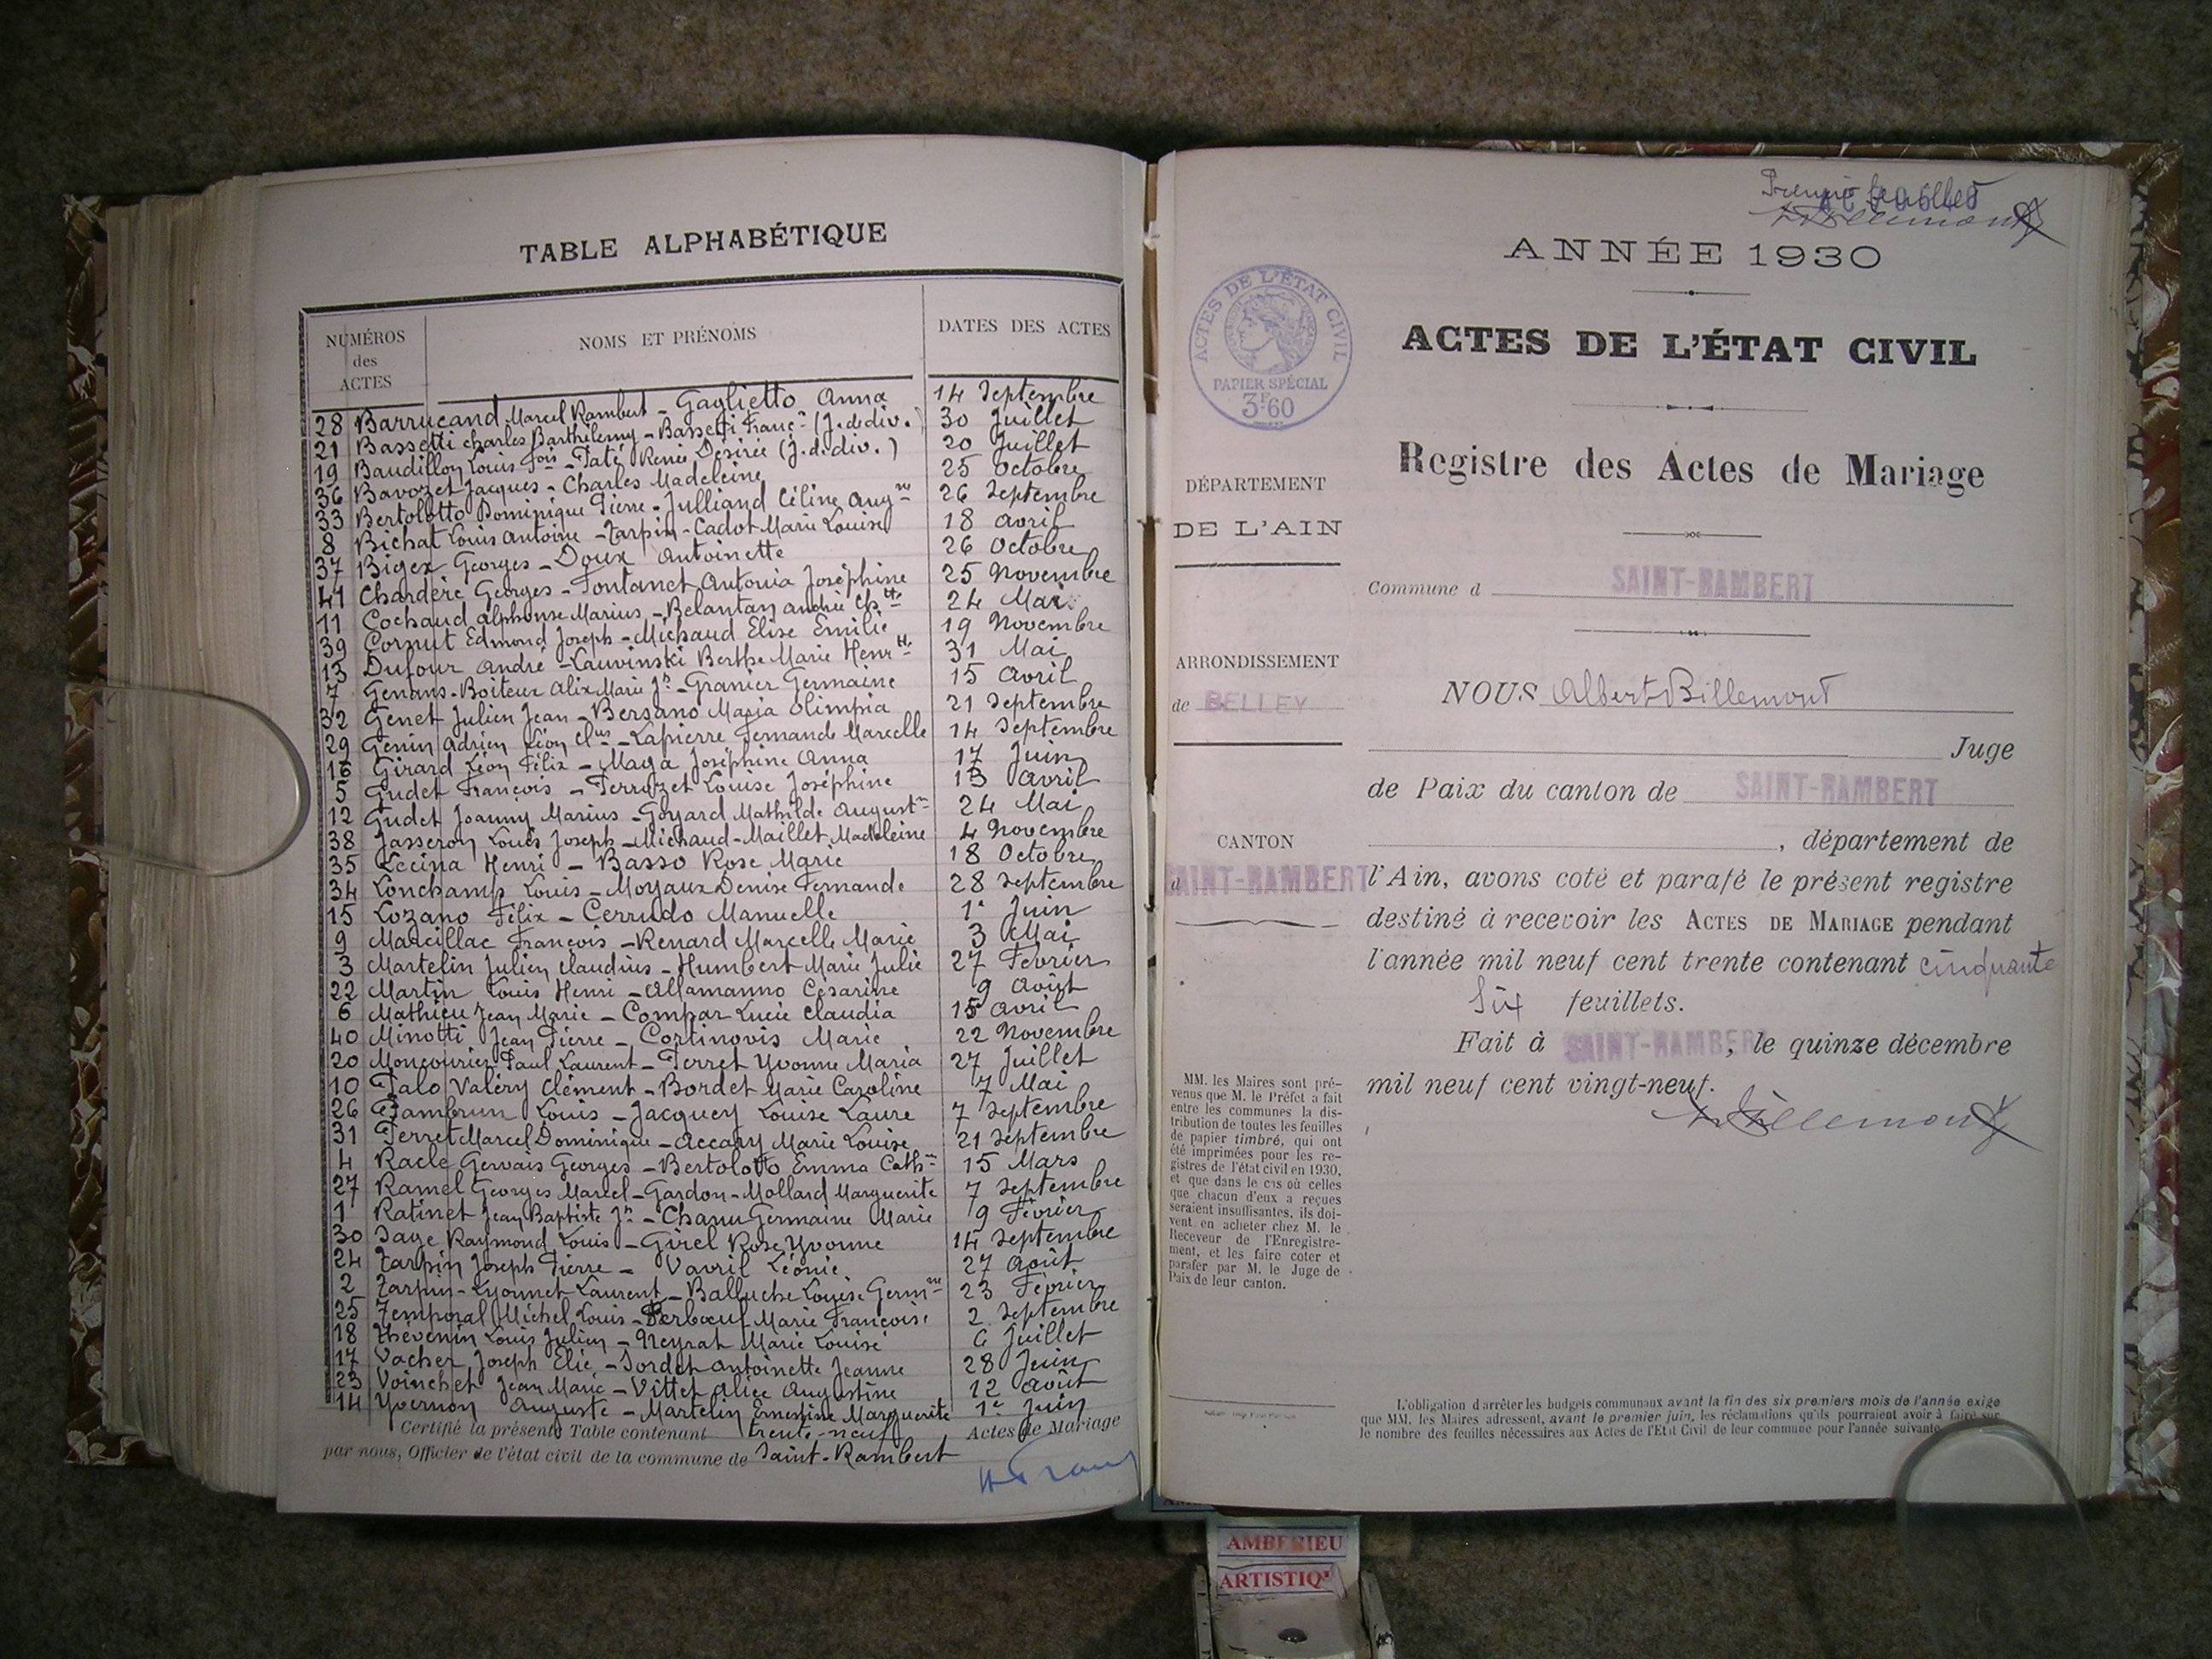 TABLE ALPHABÉTIQUE
NUMÉROS des ACTES
NOMS ET PRÉNOMS
DATES DES ACTES
28 Barrucand Marcel Rambert - Gaglietto Anna 14 Septembre
21 Bassetti Charles Barthélemy - Bassetti Franc (J. de div.) 30 Juillet
19 Baudillon Louis Fois - Taté Renée Désirée (J. d. div.) 20 Juillet
36 Bavozet Jacques - Charles Madeleine 25 Octobre
33 Bertolotto Dominique Pierre - Julliand Céline Aug ne 26 Septembre
8 Bichat Louis Antoine - Tarpin-Cadot Marie Louise 18 Avril
37 Bigex Georges - Doux Antoinette 26 Octobre
41 Chardère Georges - Fontanet Antonia Joséphine 25 Novembre
11 Cochaud Alphonse Marius - Belantan Andrée Ch tte 24 Mai
39 Cornut Edmond Joseph - Michaud Elise Emilie 19 Novembre
13 Dufour André - Lauvinski Berthe Marie Henr tte 31 Mai
7 Genans-Boiteux Alix Marie Jh - Granier Germaine 15 Avril
32 Genet Julien Jean - Bersano Maria Olimpia 21 Septembre
29 Genin Adrien Léon Cl us - Lapierre Fernande Marcelle 14 Septembre
16 Girard Léon Félix - Maya Joséphine Anna 17 Juin
5 Gudet François - Perrozet Louise Joséphine 13 Avril
12 Gudet Joanny Marius - Goyard Mathilde August ne 24 Mai
38 Jasseron Louis Joseph - Michaud-Maillet Madeleine 4 Novembre
35 Lecina Henri - Basso Rose Marie 18 Octobre
34 Lonchamp Louis - Moyaux Denise Fernande 28 Septembre
15 Lozano Félix - Cerrudo Manuelle 1er Juin
9 Marcillac François - Renard Marcelle Marie 3 Mai
3 Martelin Julien Claudius - Humbert Marie Julie 27 Février
22 Martin Louis Henri - Allamanno Césarine 9 Août
6 Mathieu Jean Marie - Compar Lucie Claudia 15 Avril
40 Minotti Jean Pierre - Cortinovis Marie 22 Novembre
20 Moncourier Paul Laurent - Perret Yvonne Maria 27 Juillet
10 Palo Valéry Clément - Bordet Marie Caroline 7 Mai
26 Pambrun Louis - Jacquey Louise Laure 7 Septembre
31 Perret Marcel Dominique - Accary Marie Louise 21 Septembre
4 Racle Gervais Georges - Bertolotto Emma Cath ne 15 Mars
27 Ramel Georges Marcel - Gardon-Mollard Marguerite 7 Septembre
1 Ratinet Jean Baptiste Jh - Chanu Germaine Marie 9 Février
30 Sage Raymond Louis - Girel Rose Yvonne 14 Septembre
24 Tarpin Joseph Pierre - Vavril Léonie 27 Août
2 Tarpin-Lyonnet Laurent - Balluche Louise Germ ne 23 Février
25 Temporal Michel Louis - Berbœuf Marie Françoise 2 Septembre
18 Thévenin Louis Julien - Neyrat Marie Louise 6 Juillet
17 Vacher Joseph Elie - Sordet Antoinette Jeanne 28 Juin
23 Voinchet Jean Marie - Vittet Alice Augustine 12 Août
14 Yvernon Auguste - Martelin Ernestine Marguerite 1er Juin
Certifié la présente Table contenant trente-neuf Actes de Mariage
par nous, Officier de l'état civil de la commune de Saint-Rambert
Premier feuillet
Billemont
ANNÉE 1930
ACTES DE L'ÉTAT CIVIL
PAPIER SPÉCIAL
3F60
ACTES DE L'ÉTAT CIVIL
Registre des Actes de Mariage
DÉPARTEMENT
DE L'AIN
Commune d SAINT-RAMBERT
ARRONDISSEMENT
de BELLEY
CANTON
d SAINT-RAMBERT
NOUS Albert Billemont
Juge
de Paix du canton de SAINT-RAMBERT
, département de
l'Ain, avons coté et parafé le présent registre
destiné à recevoir les ACTES DE MARIAGE pendant
l'année mil neuf cent trente contenant cinquante
six feuillets.
Fait à SAINT-RAMBERT, le quinze décembre
mil neuf cent vingt-neuf.
Billemont
MM. les Maires sont pré-
venus que M. le Préfet a fait
entre les communes la dis-
tribution de toutes les feuilles
de papier timbré, qui ont
été imprimées pour les re-
gistres de l'état civil en 1930,
et que dans le cas où celles
que chacun d'eux a reçues
seraient insuffisantes, ils doi-
vent en acheter chez M. le
Receveur de l'Enregistre-
ment, et les faire coter et
parafer par M. le Juge de
Paix de leur canton.
L'obligation d'arrêter les budgets communaux avant la fin des six premiers mois de l'année exige
que MM. les Maires adressent, avant le premier juin, les réclamations qu'ils pourraient avoir à faire sur
le nombre des feuilles nécessaires aux Actes de l'Etat Civil de leur commune pour l'année suivante
AMBERIEU
ARTISTIQ